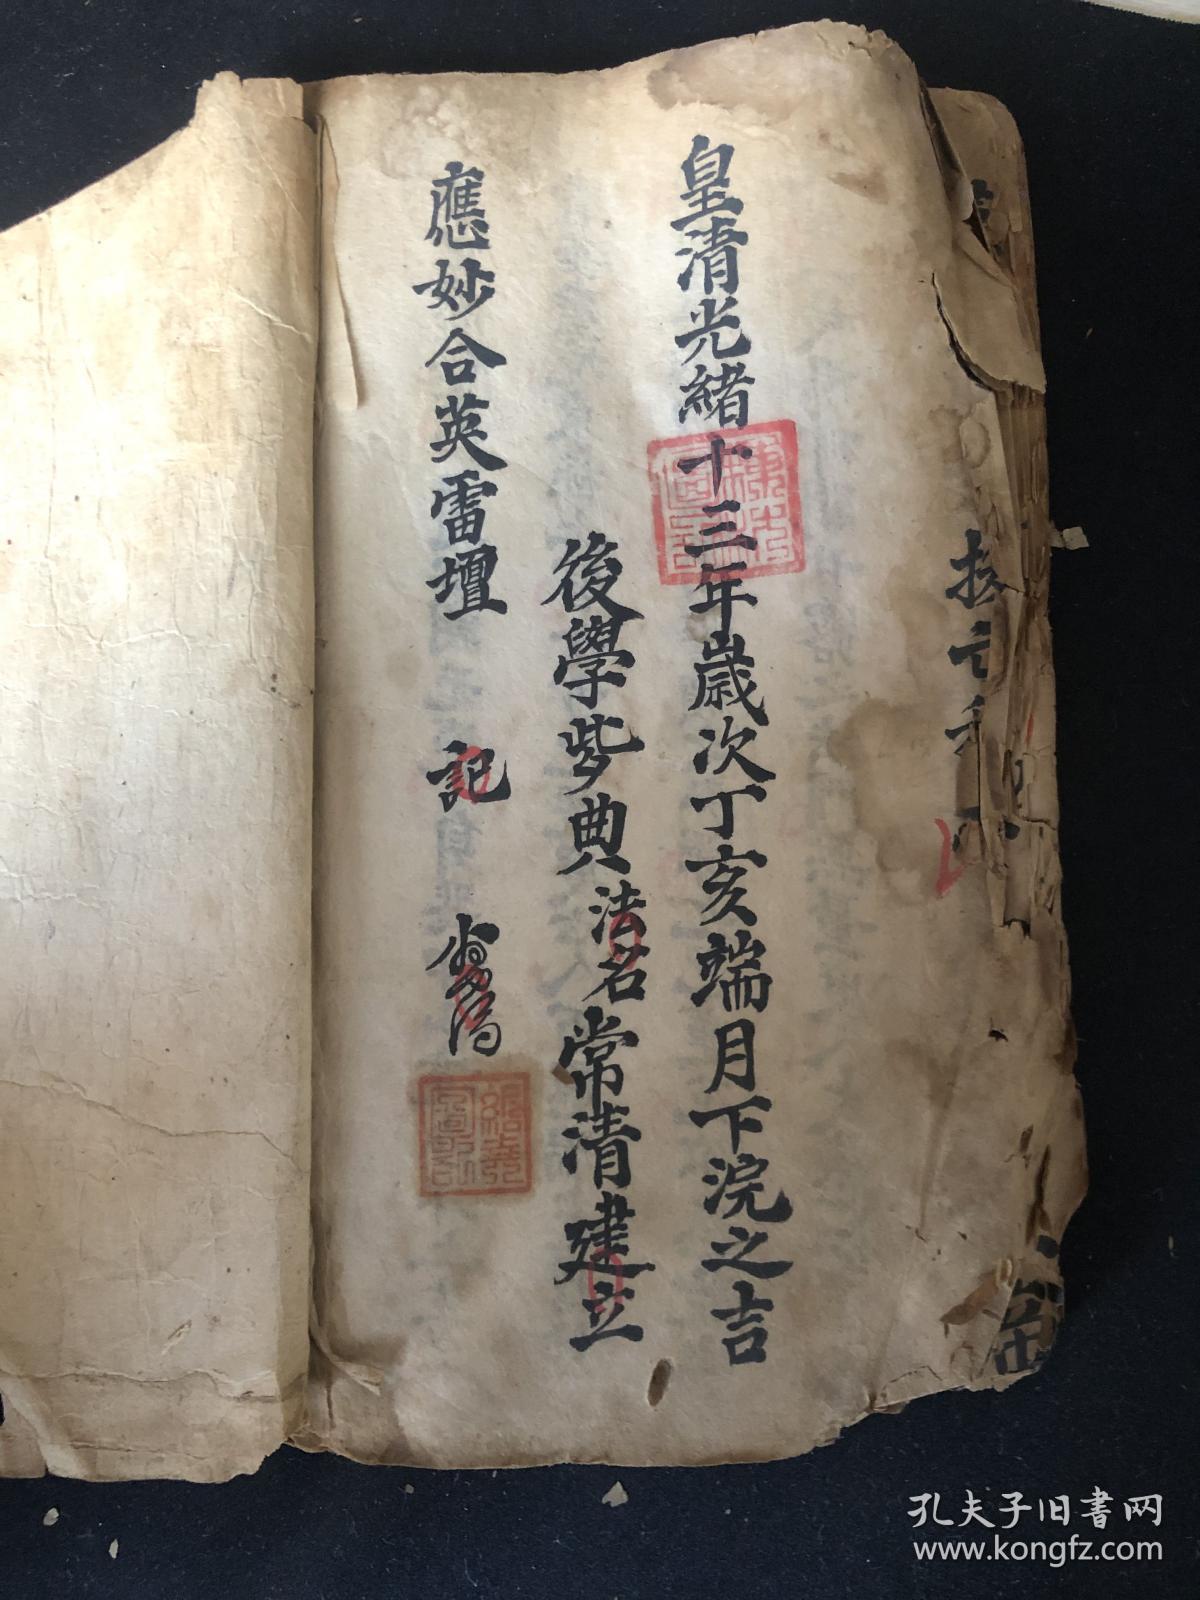 皇清光緒十三年歲次丁亥端月下浣之吉
後學 典法名常清建立
應妙合英雷壇 記
孔夫子旧書网
www.kongfz.com